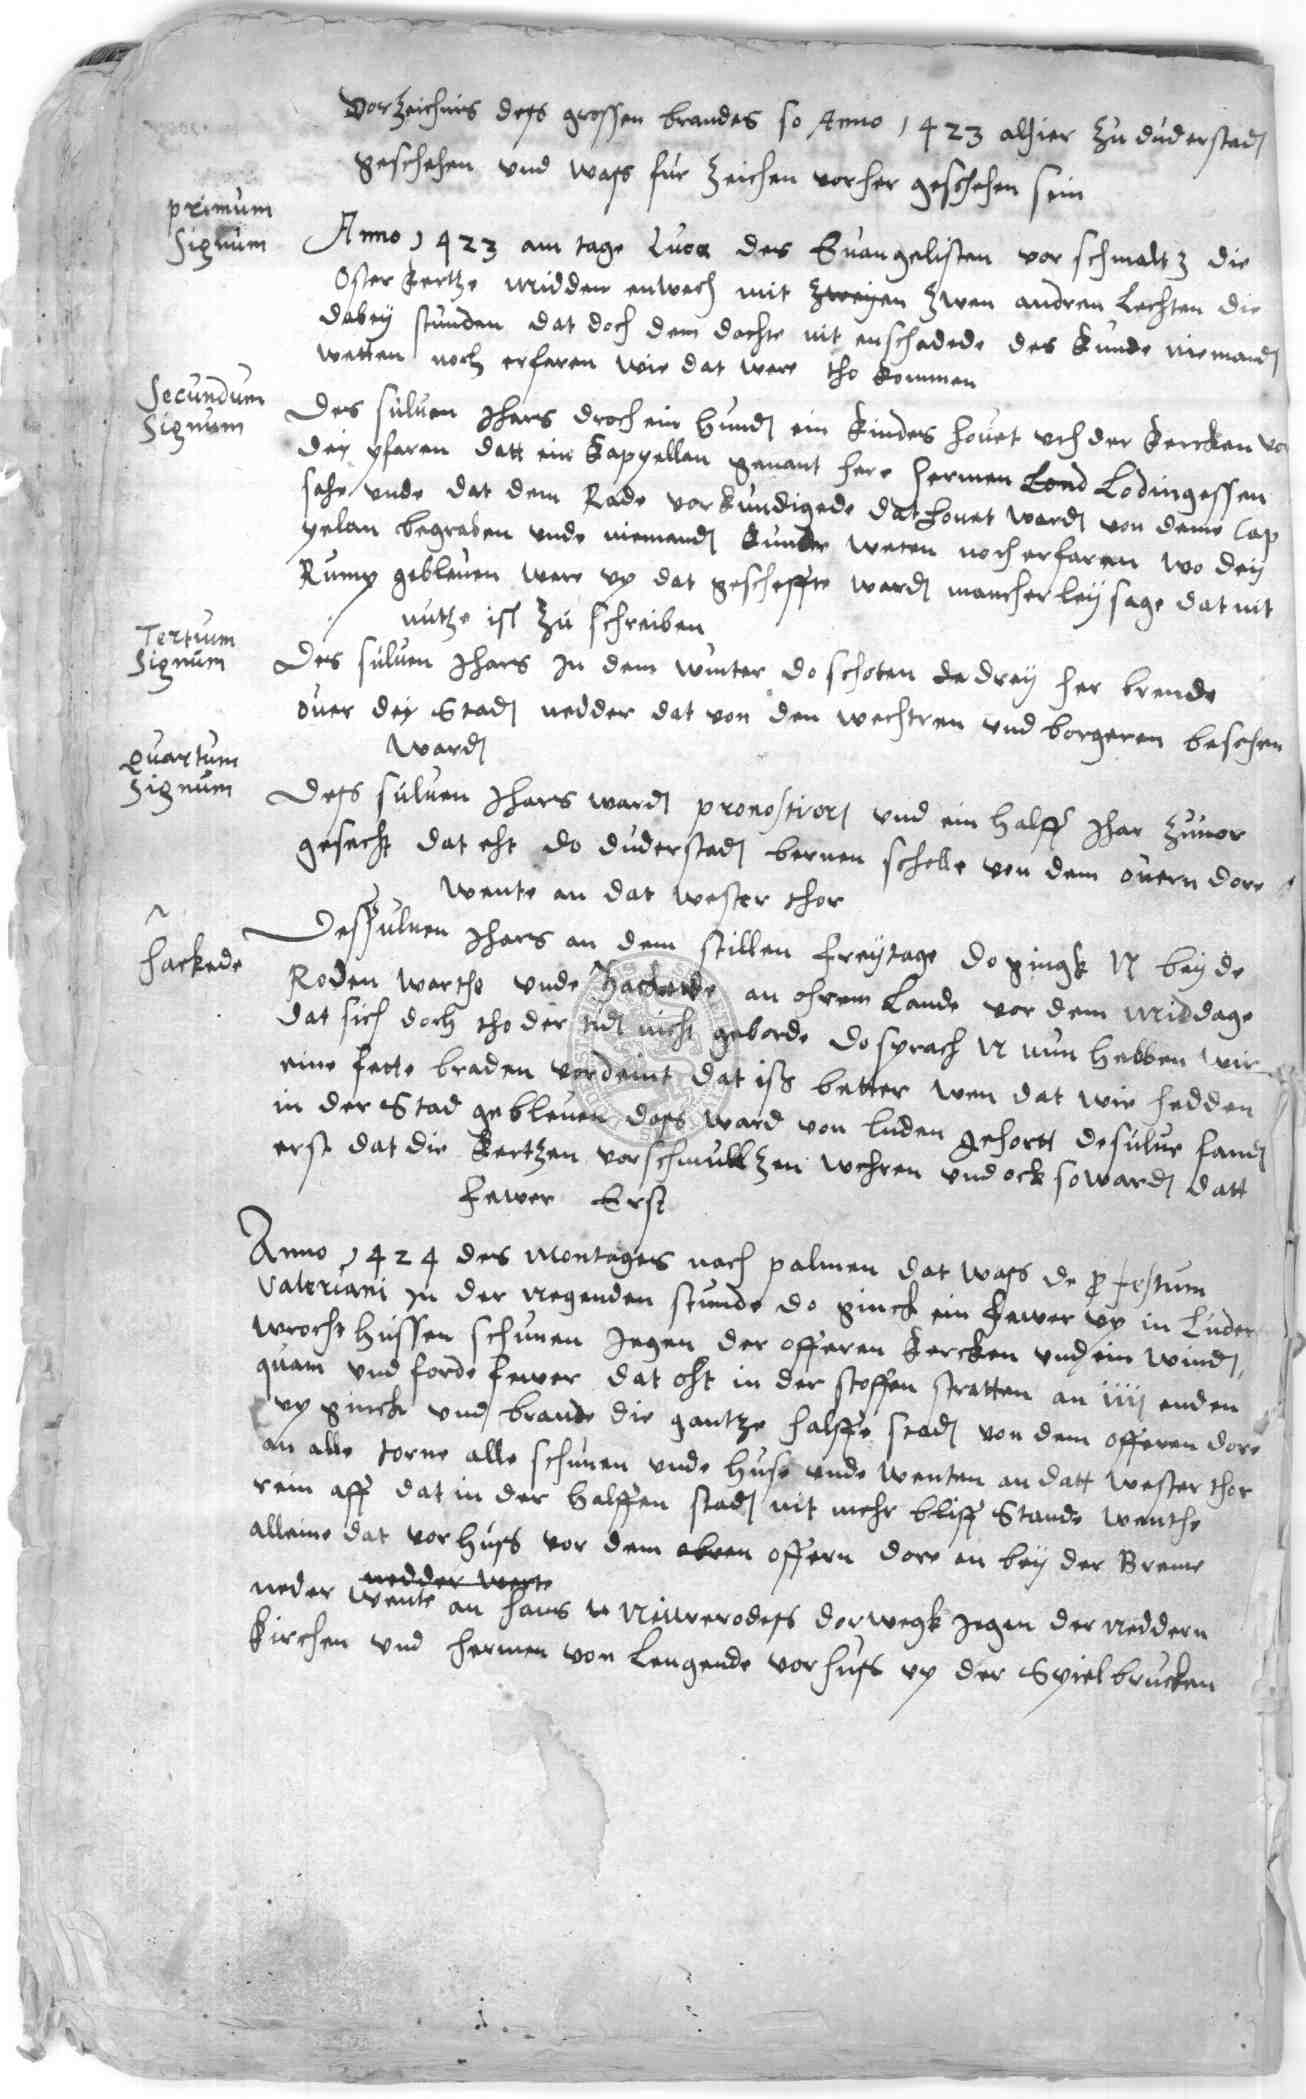 Vorzeichnis dess grossen brandes so Anno 1423 alhier zu duderstadt
geschehen und wass fur zeichen vorher geschehen sein
primum
Signum
Anno 1423 am tage Luca des Euangelisten vor schmaltz die
Oster kertze midden enwech mit zweyen zwen andren Lechten die
dabey stunden dat doch dem dachte nit enschadede des kunde niemandt
wetten noch erfaren wie dat were tho kommen
Secundum
Signum
Des suluen Jhars droch ein hundt ein kindes houet uth der kercken vor
dey pfaren datt ein kappellan genant here hermen Lodingessen
sahe unde dat dem Rade vorkundigede dat houet wardt von deme Cap
pelan begraben unde niemandt kunde weten noch erfaren wo dey
Rump gebleuen were up dat gescheffte wardt mancherley sage dat nit
nutze ist zu schreiben
Tertium
Signum
Des suluen Jhars In dem winter do schoten de drey her brende
ouer dey Stadt nedder dat von den wechtren und borgeren beschen
wardt
Quartum
Signum
Dess suluen Jhars wardt pronosticert und ein halff Jhar zuuor
gesecht dat eht do duderstadt bernen scholle von dem ouern dore
wente an dat wester thor
hackede
Dessuluen Jhars an dem stillen freytage do gingk N bey de
Roden warthe unde hackede an ohrem Lande vor dem middage
dat sich doch tho der tidt nicht geborde do sprach N nun hebben wir
eine fette braden vordeint dat iss better wen dat wir hedden
in der Stad gebleuen dass ward von luden gehortt desulue fandt
erst dat die kertzen vorschmultzen wehren und ock so wardt datt
fewer Erst
Anno 1424 des Montages nach palmen dat wass de profestum
Valeriani in der negenden stunde do ginck ein fewer up in Luder
wrocht hussen schunen Jegen der offeren kercken und ein windt
quam und forde fewer dat oht in der stoffen stratten an iiij enden
up ginck und brande die gantze halffe stadt von dem offeren dore
an alle torne alle schunen unde huse unde wenten an datt wester thor
rein aff dat in der halffen stadt nit mehr bliff Stande wenthe
alleine dat vorhuss vor dem obren offern dore en bey der Breme
nedder werte
neder wente an hans Niurerodess dorwegk Jegen der neddern
kirchen und hermen von Lengende vorhuss up der Spielbrucken